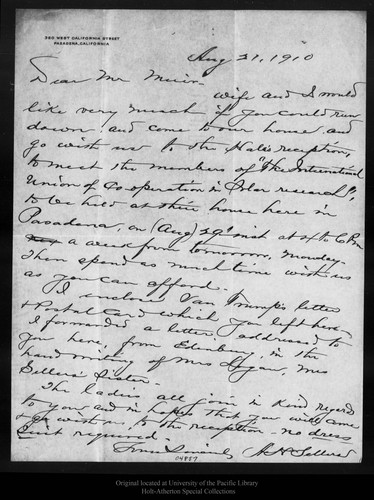 360 WEST CALIFORNIA STREET
PASADENA, CALIFORNIA
Aug 21, 1910
Dear Mr Muir-
Wife and I would
like very much if you could run
down and come to our house and
go with us to the Hale's reception,
to meet the members of "The International
Union of Co-operation in Solar research",
to be held at their home here in
Pasadena, on (Aug) 29th inst at 4 to 6 P.m
a week from tomorrow, Monday.
Then spend as much time with us
as you can afford.
I enclose Van Trump's letter
& Postal Card which you left here.
I forwarded a letter addressed to
you here, from Edinburg, in the
hand writing of Mrs , Mrs
Sellers' sister.
The ladies all join in kind regards
to you and in hopes that you will come
& go with us to the reception - no dress
suit required -
Yours Sincerely A H Sellers
04887
Original located at University of the Pacific Library
Holt-Atherton Special Collections